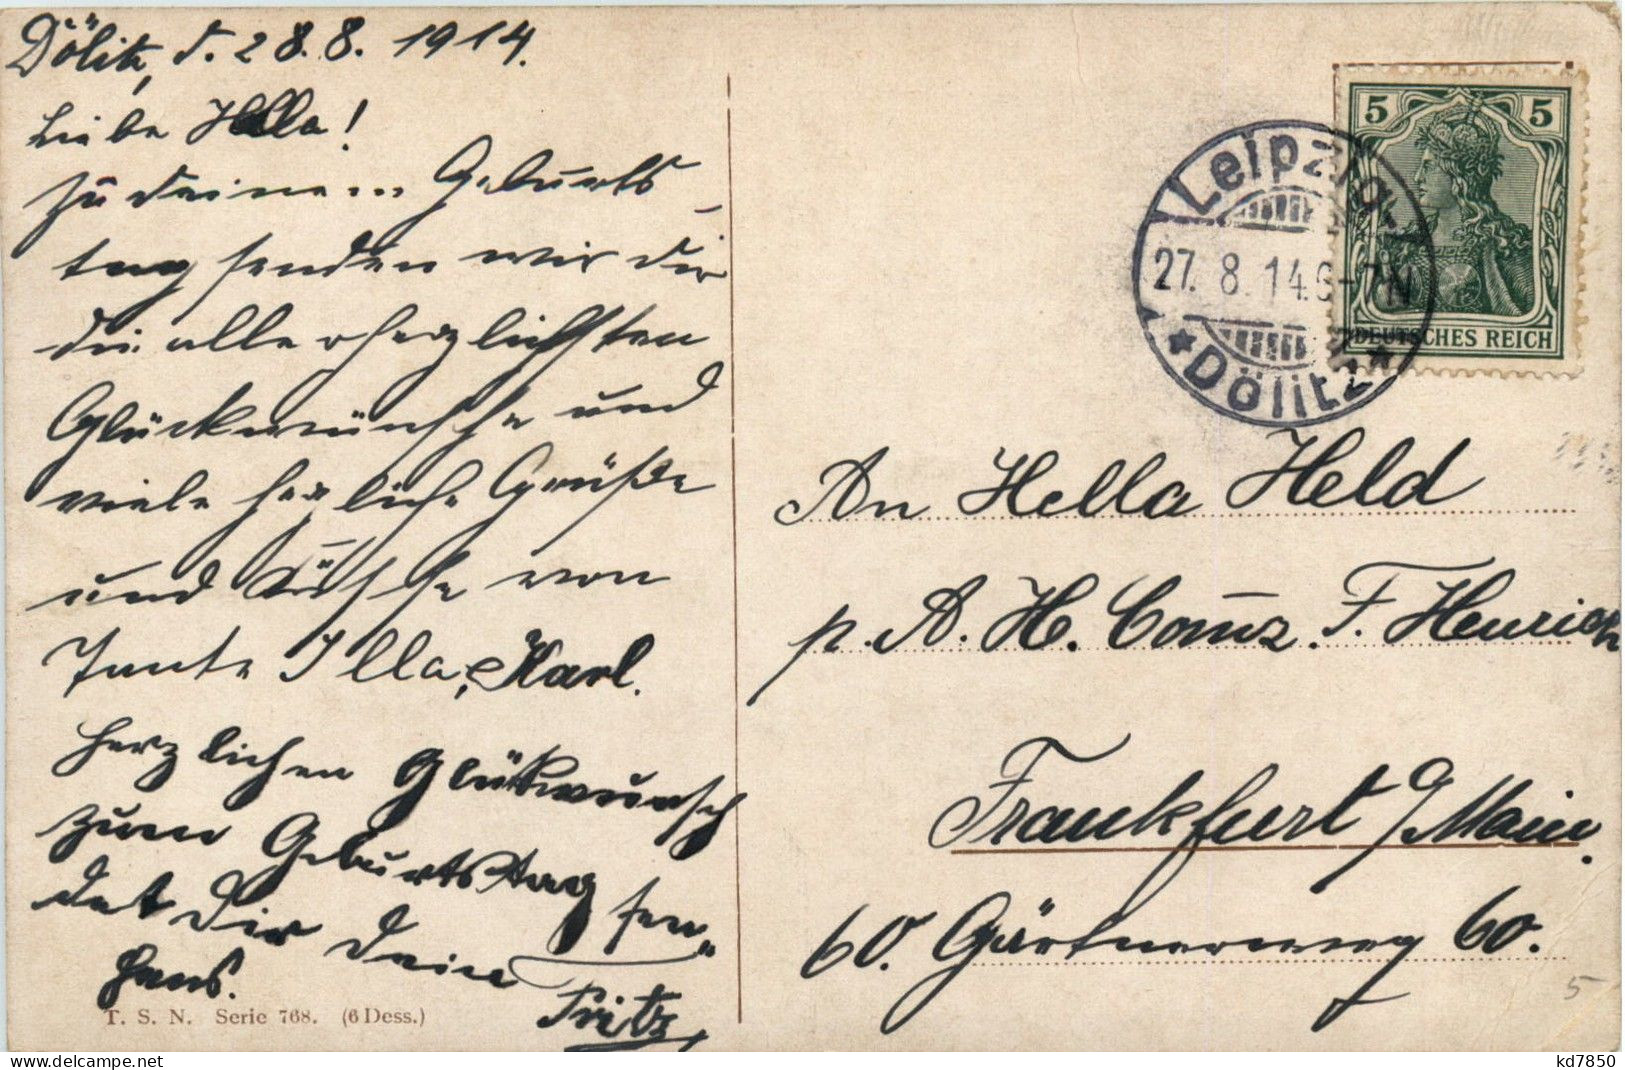 Dölitz, d. 28.8.1914.
Liebe Hella!
Zu deinem Geburts-
tag senden wir dir
die allerherzlichsten
Glückwünsche und
viele herzliche Grüße
und Küsse von
Tante Illa, Karl.
Herzlichen Glükwunsch
zum Geburtstag sen-
det dir dein
Hans. Fritz
T. S. N. Serie 768. (6 Dess.)
5 5
DEUTSCHES REICH
Leipzig-
27. 8. 14. 6-7 N
* Dölitz *
An Hella Held
p. A. H. F. Henrich
Frankfurt a/Main.
60. Gärtnerweg 60.
5
kd7850